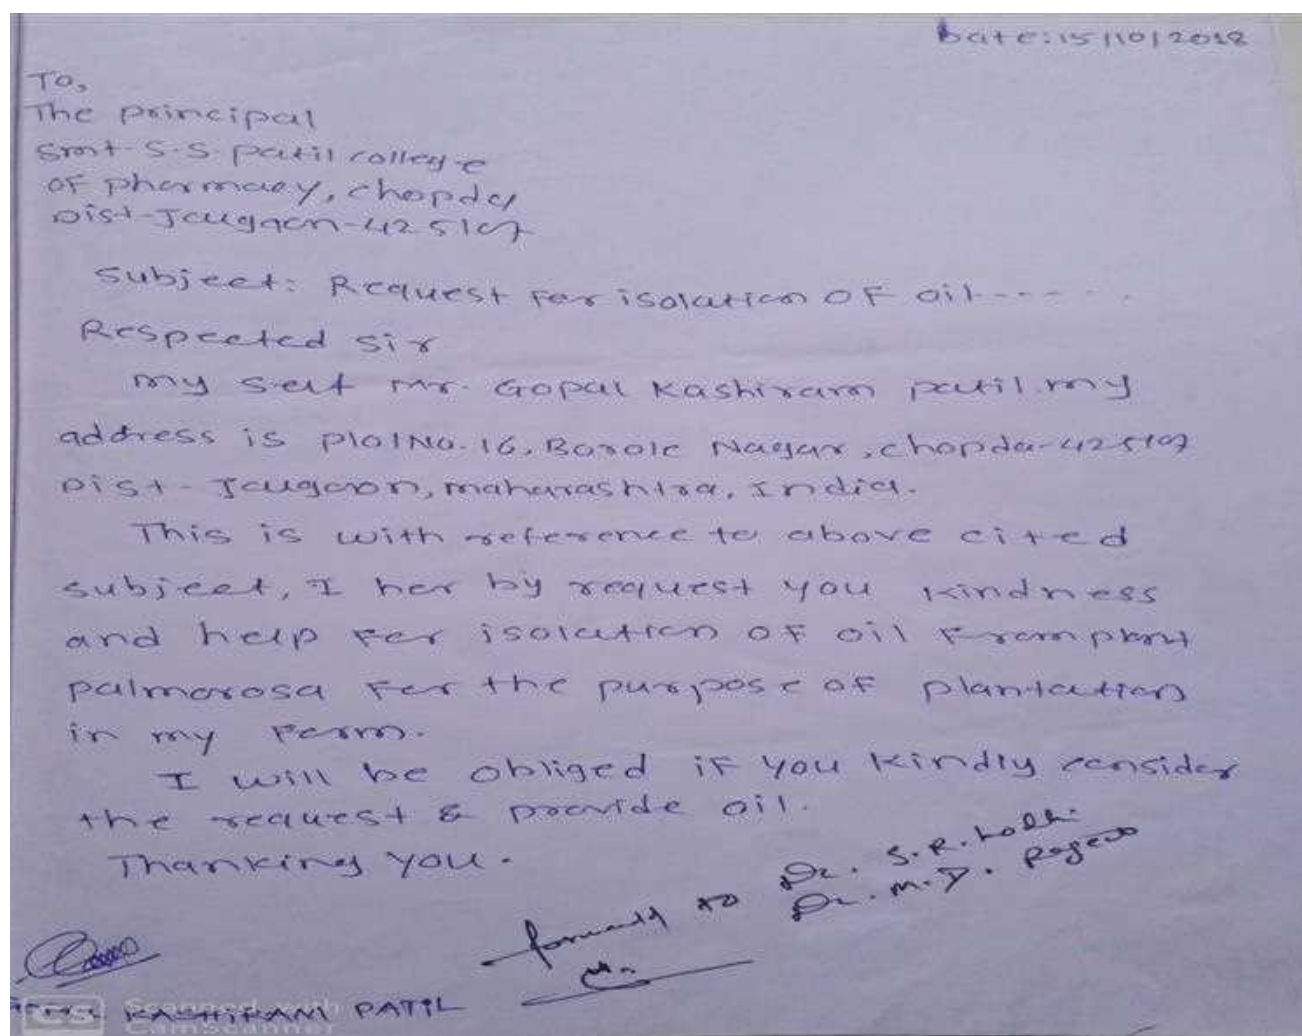 Date: 15/10/2018
To,
The principal
Smt. S.S. patil college
of pharmacy, chopda
Dist-Jalgaon-425107
Subject: Request for isolation of oil------
Respected sir
my self Mr. Gopal Kashiram patil. my
address is plot No. 16, Borole Nagar, chopda-425107
Dist - Jalgaon, maharashtra, India.
This is with reference to above cited
subject, I her by request you kindness
and help for isolation of oil from plant
palmorosa for the purpose of plantation
in my farm.
I will be obliged if you kindly consider
the request & provide oil.
Thanking you.
Dr. S.R. Lodhi
Dr. M.D. Rageeb
to
KASHIRAM PATIL
CS Scanned with
CamScanner